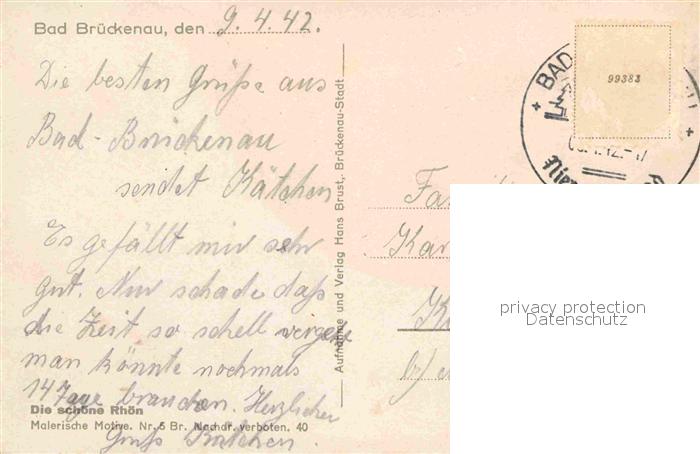 Bad Brückenau, den 9.4.42.
Die besten Grüße aus
Bad-Brückenau
sendet Kätchen
Es gefällt mir sehr
gut. Nur schade daß
die Zeit so schell vergeht
man könnte nochmals
14 Tage brauchen. Herzlichen
Gruß Kätchen.
Die schöne Rhön
Malerische Motive. Nr. 5 Br. Nachdr. verboten. 40
Aufnahme und Verlag Hans Brust, Brückenau-Stadt
BAD
99383
Fa
Kar
privacy protection
Datenschutz